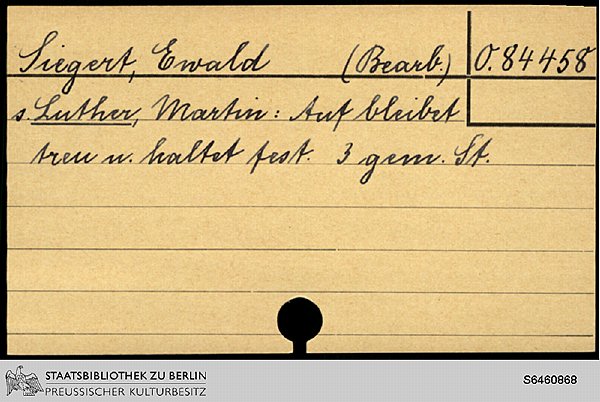 Siegert, Ewald (Bearb.) O. 84458
s. Luther, Martin: Auf bleibet
treu u. haltet fest. 3 gem. St.
STAATSBIBLIOTHEK ZU BERLIN
PREUSSISCHER KULTURBESITZ
S6460868